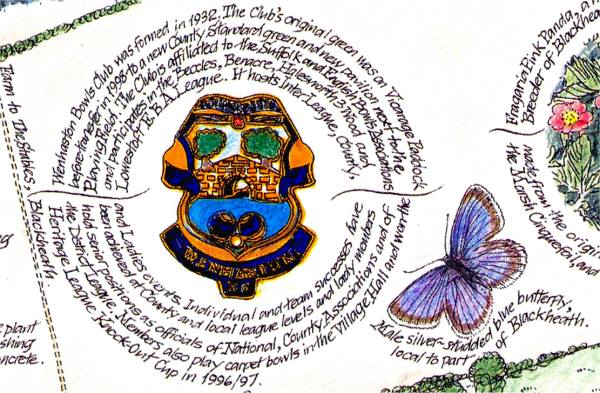 Wenhaston Bowls Club was formed in 1932. The Club's original green was on Vicarage Paddock
before transfer in 1983 to a new County Standard green and new pavilion next to the
Playing field. The Club is affiliated to the Suffolk and English Bowls Associations
and participates in the Beccles, Benacre, Halesworth 3 Wood and
Lowestoft E.B.A. League. It hosts Inter-League, County,
and Ladies events. Individual and team successes have
been achieved at County and local league levels and lady members
hold senior positions as officials of National, County Associations and of
the District League. Members also play carpet bowls in the Village Hall and won the
Heritage League Knock-Out Cup in 1996/97.
Barn to The Stables,
Blackheath.
plant
shing
oncrete.
Fragaria Pink Panda, a
Breeder of Blackheath
made from the origin
the Marsh Cinquefoil and
Male silver-studded blue butterfly,
local to part of Blackheath.